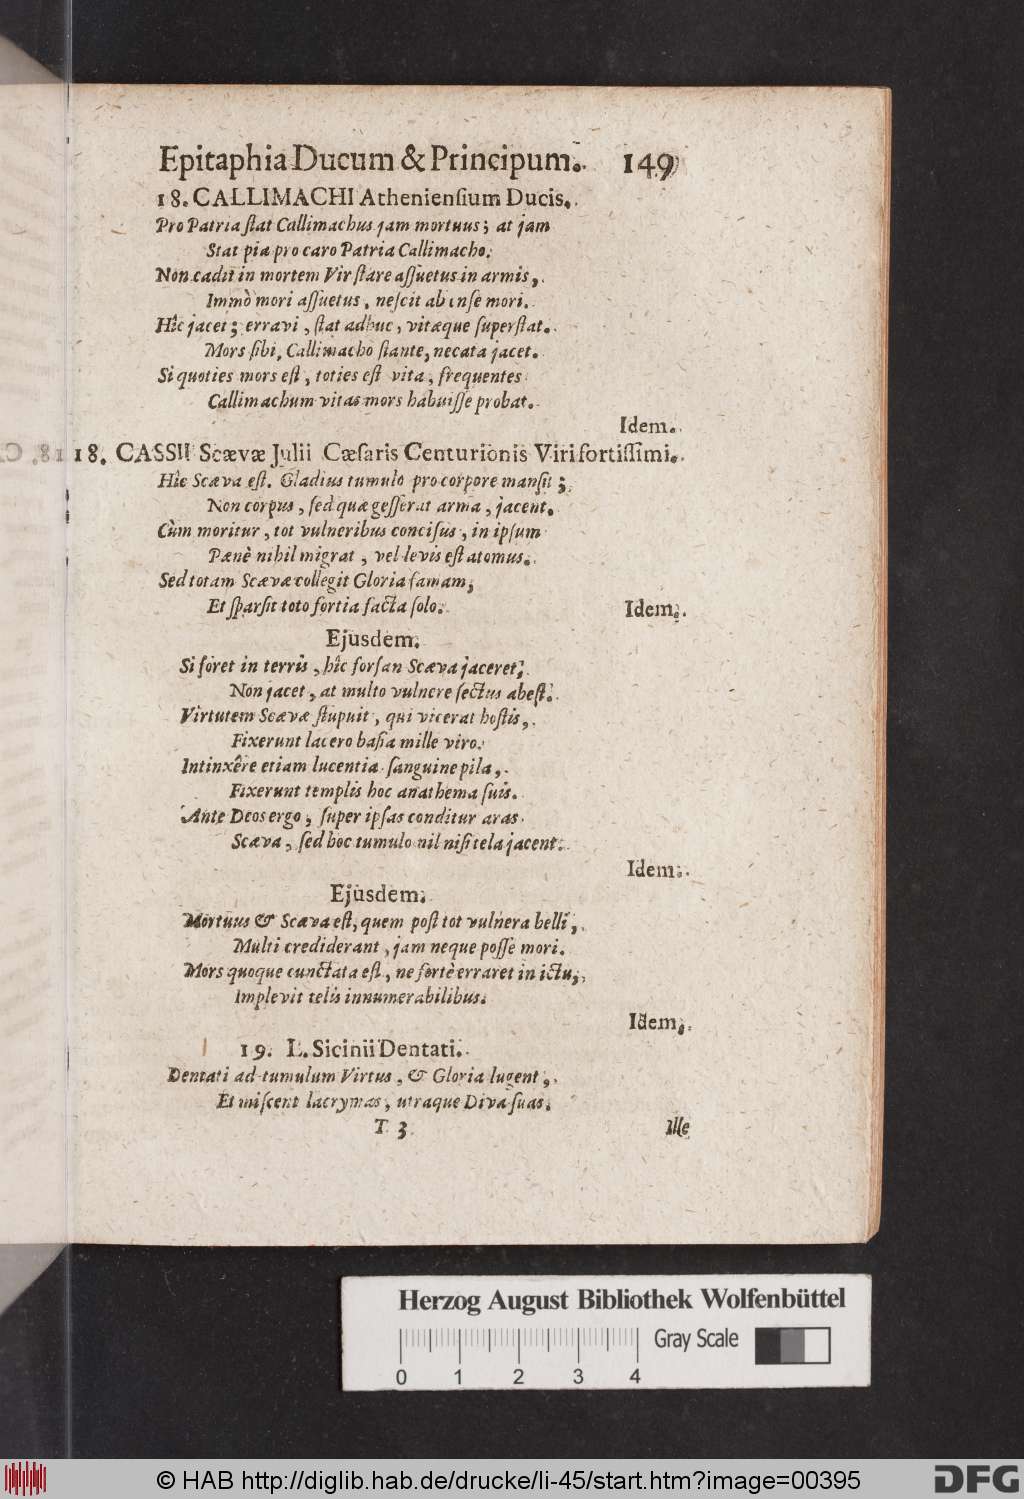 Epitaphia Ducum & Principum. 149
18. CALLIMACHI Atheniensium Ducis.
Pro Patria ſtat Callimachus jam mortuus; at jam
Stat pia pro caro Patria Callimacho.
Non cadit in mortem Vir ſtare aſſuetus in armis,
Immò mori aſſuetus, neſcit ab enſe mori.
Hîc jacet; erravi, ſtat adhuc, vitæque ſuperſtat.
Mors ſibi, Callimacho ſtante, necata jacet.
Si quoties mors eſt, toties eſt vita, frequentes
Callimachum vitas mors habuiſſe probat.
Idem.
18. CASSII Scævæ Julii Cæſaris Centurionis Viri fortiſſimi.
Hîc Scæva eſt. Gladius tumulo pro corpore manſit;
Non corpus, ſed quæ geſſerat arma, jacent.
Cùm moritur, tot vulneribus conciſus, in ipſum
Pænè nihil migrat, vel levis eſt atomus.
Sed totam Scævæ collegit Gloria famam,
Et ſparſit toto fortia facta ſolo.
Idem.
Ejusdem.
Si foret in terris, hîc forſan Scæva jaceret,
Non jacet, at multo vulnere ſectus abeſt.
Virtutem Scævæ ſtupuit, qui vicerat hoſtis,
Fixerunt lacero baſia mille viro.
Intinxêre etiam lucentia ſanguine pila,
Fixerunt templis hoc anathema ſuis.
Ante Deos ergo, ſuper ipſas conditur aras
Scæva, ſed hoc tumulo nil niſi tela jacent.
Idem.
Ejusdem.
Mortuus & Scæva eſt, quem poſt tot vulnera belli,
Multi crediderant, jam neque poſſe mori.
Mors quoque cunctata eſt, ne fortè erraret in ictu,
Implevit telis innumerabilibus.
Idem.
19. L. Sicinii Dentati.
Dentati ad tumulum Virtus, & Gloria lugent,
Et miſcent lacrymas, utraque Diva ſuas.
T 3 Ille
Herzog August Bibliothek Wolfenbüttel
Gray Scale
0 1 2 3 4
© HAB http://diglib.hab.de/drucke/li-45/start.htm?image=00395 DFG